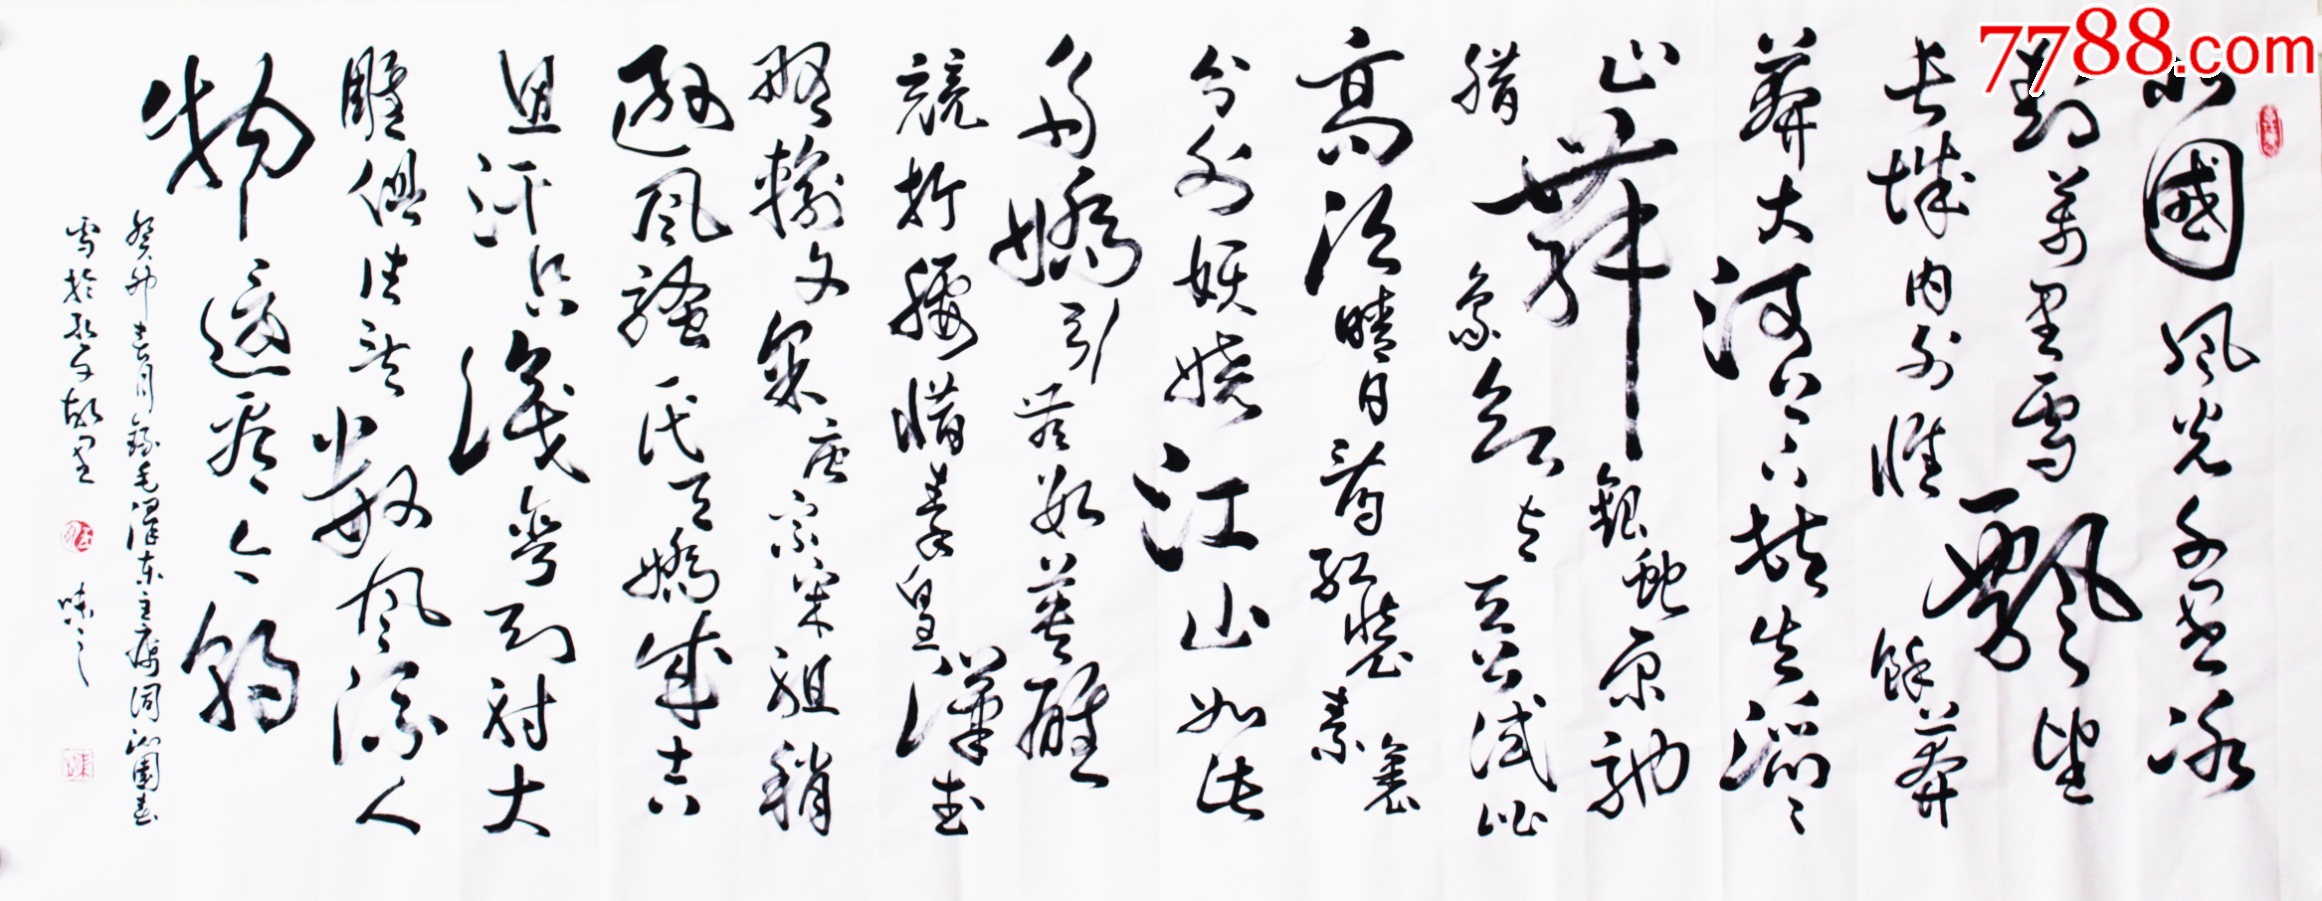 7788.com
北國風光千里冰
封萬里雪飄望
長城內外惟餘莽
莽大河上下頓失滔々
山舞銀蛇原馳
腊象欲與天公試比
高須晴日看紅裝素裹
分外妖嬈江山如此
多嬌引無數英雄
競折腰惜秦皇漢武
略輸文采唐宗宋祖稍
遜風騷一代天嬌成吉
思汗只識彎弓射大
雕俱往矣數風流人
物還看今朝
癸卯春月錄毛澤東主席詞沁園春
雪於孔子故里